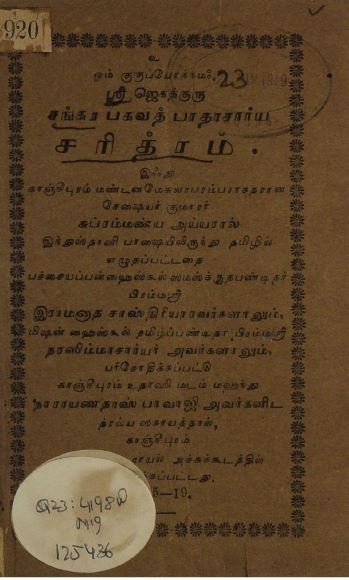 920
உ
ஓம் குருப்யோநம:
23
1919
ஸ்ரீ ஜெகத்குரு
சங்கர பகவத் பாதாசார்ய
சரித்ரம்.
இஃது
காஞ்சீபுரம்
சேஷையர் குமாரர்
சுப்ரம்மண்ய அய்யரால்
இந்துஸ்தானி பாஷையிலிருந்து தமிழில்
எழுதப்பட்டதை
பச்சையப்பன் ஹைஸ்கூல்
பிரம்மஸ்ரீ
இராமனாத சாஸ்திரியாரவர்களாலும்,
மிஷன் ஹைஸ்கூல் தமிழ்ப்பண்டிதர் பிரம்மஸ்ரீ
நரஸிம்மாசார்யர் அவர்களாலும்,
பரிசோதிக்கப்பட்டு
காஞ்சீபுரம் உதாஸி மடம் மஹந்து
நாராயணதாஸ் பாவாஜி அவர்களிட
த்ரவ்ய ஸகாயத்தால்,
காஞ்சீபுரம்
ராயல் அச்சுக்கூடத்தில்
கப்பட்டது.
5-19.
Q23:4198வ
M19
125426